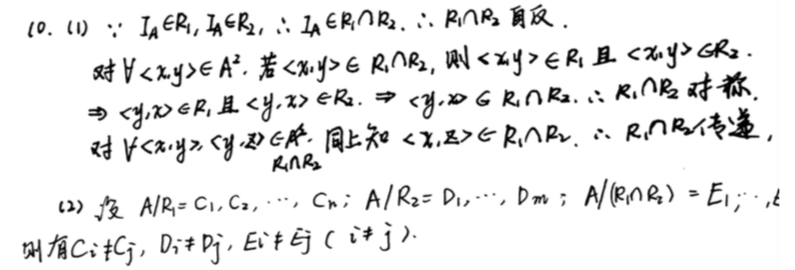 10. (1) ∵ I_A∈R₁, I_A∈R₂, ∴ I_A∈R₁∩R₂. ∴ R₁∩R₂ 自反.
对∀<x,y>∈A². 若<x,y>∈R₁∩R₂, 则<x,y>∈R₁ 且 <x,y>∈R₂.
⇒ <y,x>∈R₁ 且 <y,x>∈R₂. ⇒ <y,x>∈R₁∩R₂. ∴ R₁∩R₂ 对称.
对∀<x,y>, <y,z>∈ 同上知 <x,z>∈R₁∩R₂. ∴ R₁∩R₂传递,
R₁∩R₂
(2) 设 A/R₁=C₁,C₂,⋯,Cn; A/R₂=D₁,⋯,Dm; A/(R₁∩R₂)=E₁,⋯,E
则有Ci≠Cj, Di≠Dj, Ei≠Ej (i≠j).